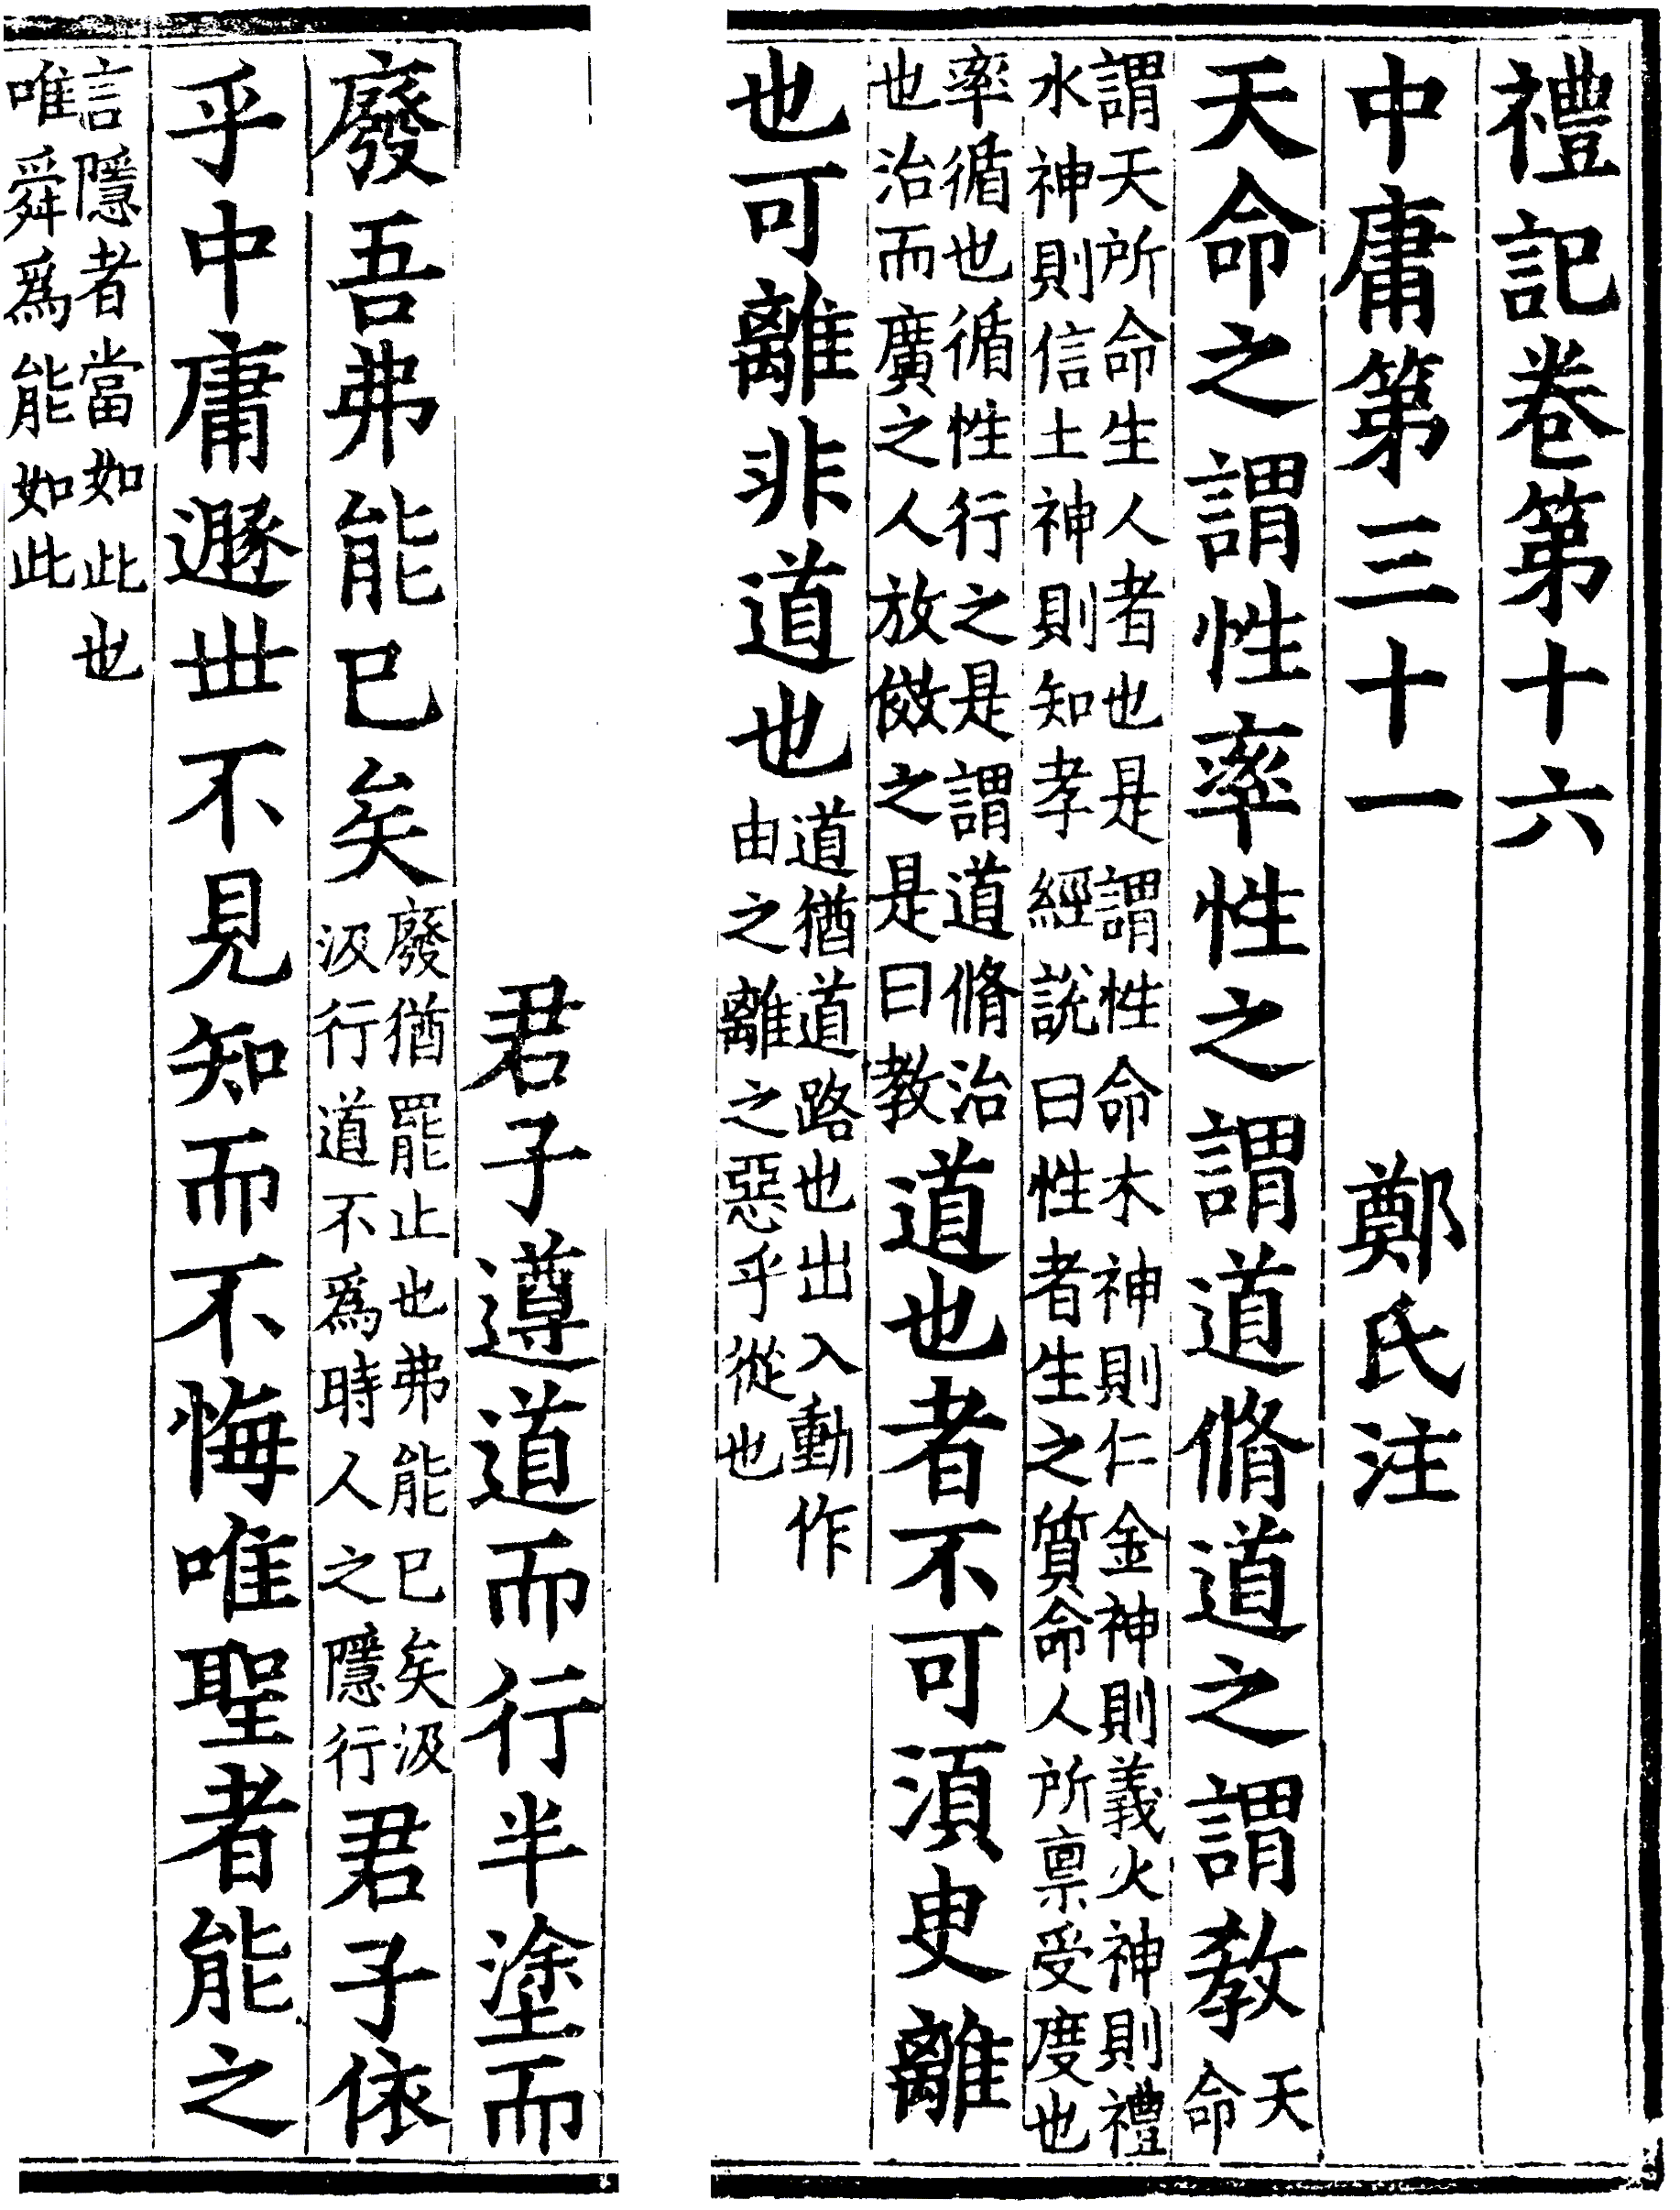 禮記卷第十六
中庸第三十一 鄭氏注
天命之謂性率性之謂道脩道之謂教天命
謂天所命生人者也是謂性命木神則仁金神則義火神則禮
水神則信土神則知孝經説曰性者生之質命人所禀受度也
率循也循性行之是謂道脩治
也治而廣之人放傚之是曰教
道也者不可須臾離
也可離非道也
道猶道路也出入動作
由之離之惡乎從也
君子遵道而行半塗而
廢吾弗能已矣
廢猶罷止也弗能已矣汲
汲行道不爲時人之隱行
君子依
乎中庸遯世不見知而不悔唯聖者能之
言隱者當如此也
唯舜爲能如此